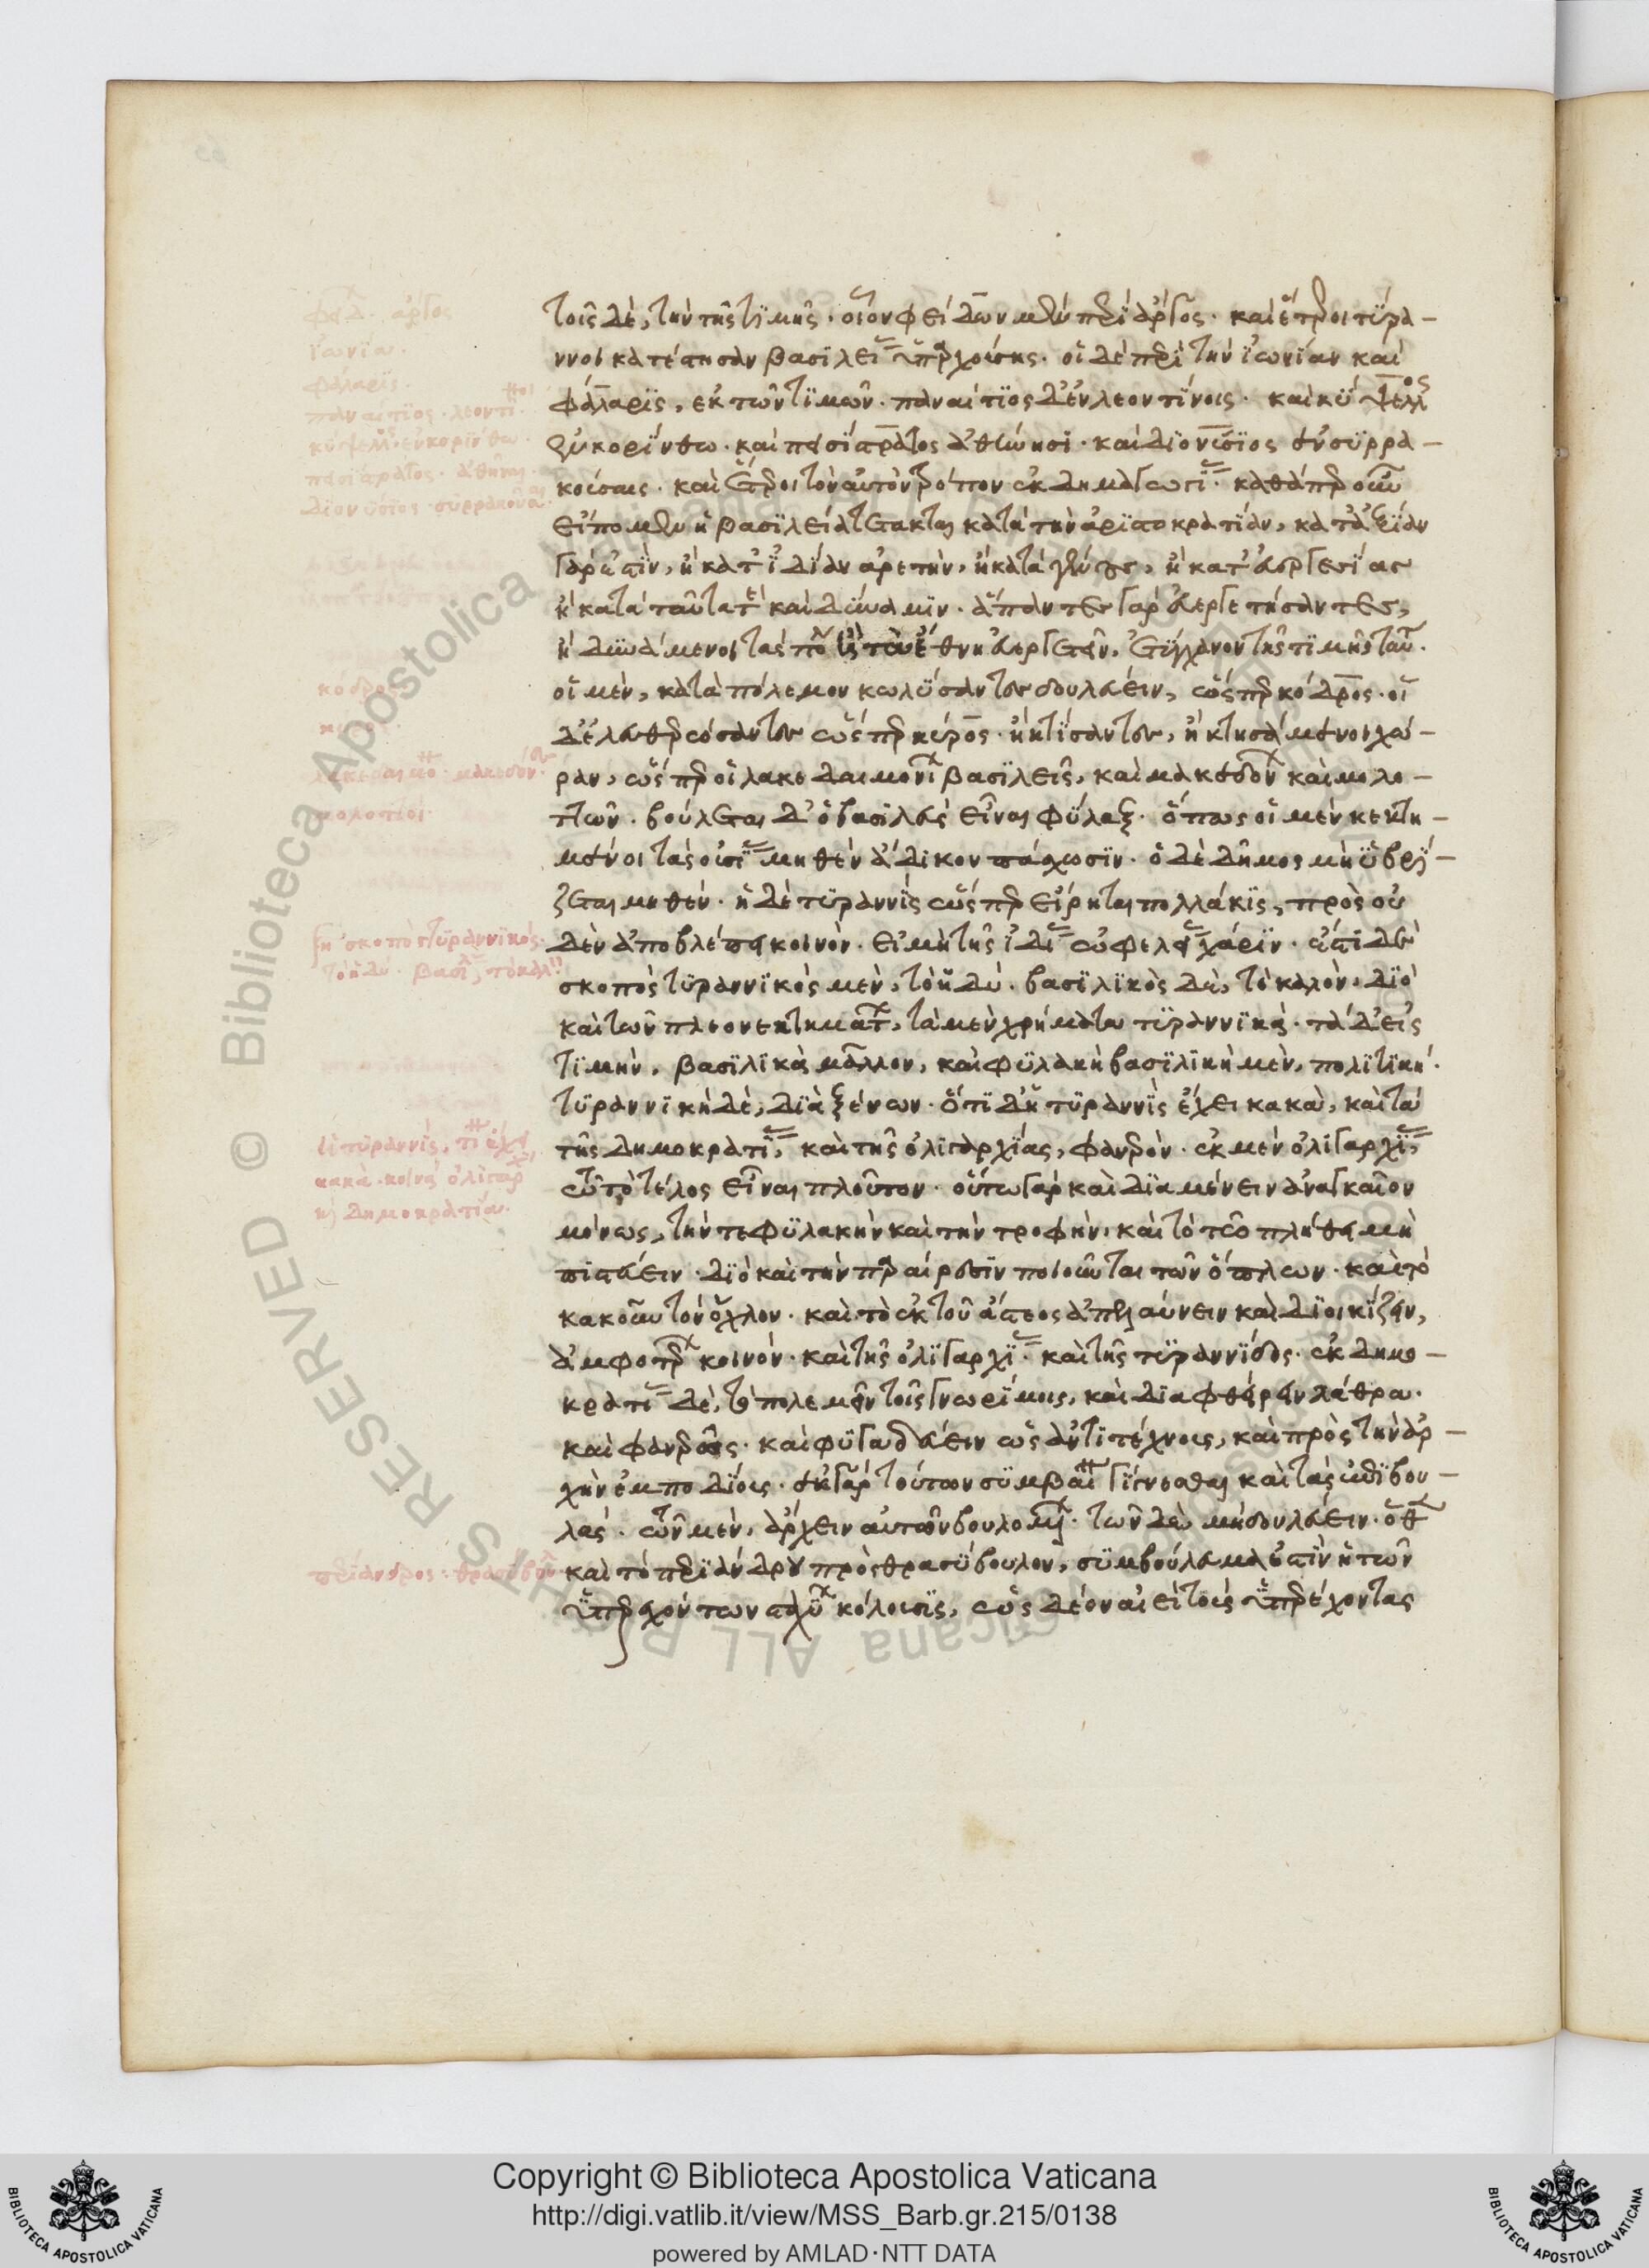 τοῖς δὲ, τὴν τῆς τιμῆς· οἷον φείδων μὲν περὶ ἄργος· καὶ ἕτεροι τύρα-
ννοι κατέστησαν βασιλείας ὑπαρχούσης· οἱ δὲ περὶ τὴν ἰωνίαν καὶ
φάλαρις, ἐκ τῶν τιμῶν· παναίτιος δ' ἐν λεοντίνοις· καὶ κύψελλος
ἐν κορίνθω· καὶ πεισίστρατος ἀθήνησι· καὶ διονύσιος ἐν συρρα-
κούσαις· καὶ ἕτεροι τὸν αὐτὸν τρόπον ἐκ δημαγωγίας· καθάπερ οὖν
εἴπομεν ἡ βασιλεία τέτακται κατὰ τὴν ἀριστοκρατίαν, κατ' ἀξίαν
γάρ ἐστιν, ἢ κατ' ἰδίαν ἀρετὴν, ἢ κατὰ γένος, ἢ κατ' εὐεργεσίας
ἢ κατὰ ταῦτά τε καὶ δύναμιν· ἅπαντες γὰρ εὐεργετήσαντες,
ἢ δυνάμενοι τὰς πόλεις ἢ τὰ ἔθνη εὐεργετεῖν, ἐτύγχανον τῆς τιμῆς ταύτης·
οἱ μὲν, κατὰ πόλεμον κωλύσαντες δουλεύειν, ὥσπερ κόδρος· οἱ
δ' ἐλευθερώσαντες ὥσπερ κύρος· ἢ κτίσαντες, ἢ κτησάμενοι χώ-
ραν, ὥσπερ οἱ λακεδαιμονίων βασιλεῖς, καὶ μακεδόνων καὶ μολο-
ττῶν· βούλεται δ' ὁ βασιλεὺς εἶναι φύλαξ· ὅπως οἱ μὲν κεκτη-
μένοι τὰς οὐσίας μηθὲν ἄδικον πάσχωσιν· ὁ δὲ δῆμος μὴ ὑβρί-
ζεται μηθέν· ἡ δὲ τυραννὶς ὥσπερ εἴρηται πολλάκις, πρὸς οὐ
δὲν ἀποβλέπει κοινὸν· εἰ μὴ τῆς ἰδίας ὠφελείας χάριν· ἔστι δὲ
σκοπὸς τυραννικὸς μὲν, τὸ ἡδύ· βασιλικὸς δὲ, τὸ καλόν· διὸ
καὶ τῶν πλεονεκτημάτων, τὰ μὲν χρήματα τυραννικά· τὰ δ' εἰς
τιμὴν, βασιλικὰ μᾶλλον, καὶ φυλακὴ βασιλικὴ μὲν, πολιτική·
τυραννικὴ δὲ, διὰ ξένων· ὅτι δ' ἡ τυραννὶς ἔχει κακὰ, καὶ τὰ
τῆς δημοκρατίας, καὶ τῆς ὀλιγαρχίας, φανερὸν· ἐκ μὲν ὀλιγαρχίας,
τὸ τέλος εἶναι πλοῦτον· οὕτω γὰρ καὶ διαμένειν ἀναγκαῖον
μόνως, τήν τε φυλακὴν καὶ τὴν τροφὴν, καὶ τὸ τῶ πλήθει μὴ
πιστεύειν· διὸ καὶ τὴν παραίρεσιν ποιοῦνται τῶν ὅπλων· καὶ τὸ
κακοῦν τὸν ὄχλον· καὶ τὸ ἐκ τοῦ ἄστεος ἀπελαύνειν καὶ διοικίζειν,
ἀμφοτέρων κοινόν· καὶ τῆς ὀλιγαρχίας· καὶ τῆς τυραννίδος· ἐκ δημο-
κρατίας δὲ, τὸ πολεμεῖν τοῖς γνωρίμοις, καὶ διαφθείρειν λάθρα·
καὶ φανερῶς· καὶ φυγαδεύειν ὡς ἀντιτέχνους, καὶ πρὸς τὴν ἀρ-
χὴν ἐμποδίους· ἐκ γὰρ τούτων συμβαίνει γίγνεσθαι καὶ τὰς ἐπιβου-
λάς· τῶν μὲν, ἄρχειν αὐτῶν βουλομένων· τῶν δὲ μὴ δουλεύειν· ὅθεν
καὶ τὸ περιάνδρου πρὸς θρασύβουλον, συμβούλευμά ἐστιν ἡ τῶν
ὑπερεχόντων σταχύων κόλουσις, ὡς δέον αἰεὶ τοὺς ὑπερέχοντας
ἰωνία·
φάλαρις·
παναίτιος· λεοντῖνοι
κύψελλος ἐν κορίνθω·
πεισίστρατος· ἀθήνησι
διονύσιος· συρρακοῦσαι
κόδρος
λακεδαιμόνιοι· μακεδόνες·
μολοττοί·
σκοπὸς τυραννικὸς·
τὸ ἡδύ· βασιλικὸς, τὸ καλόν
ὅτι τυραννὶς, τί ἔχει
κακὰ· κοινὰ ὀλιγαρχία
καὶ δημοκρατία·
περίανδρος· θρασύβουλος
Copyright © Biblioteca Apostolica Vaticana
http://digi.vatlib.it/view/MSS_Barb.gr.215/0138
powered by AMLAD·NTT DATA
BIBLIOTECA APOSTOLICA VATICANA
BIBLIOTECA APOSTOLICA VATICANA